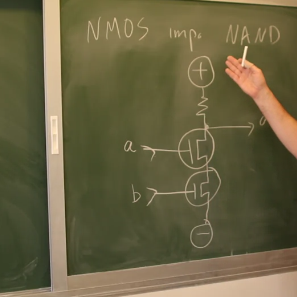 NMOS imp. NAND
+
a
b
−